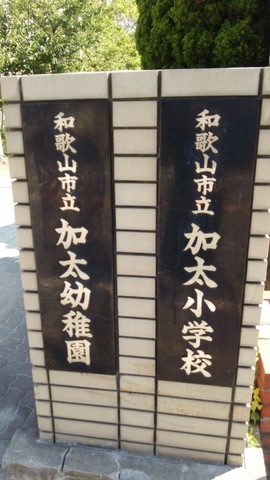 和歌山市立 加太小学校
和歌山市立 加太幼稚園